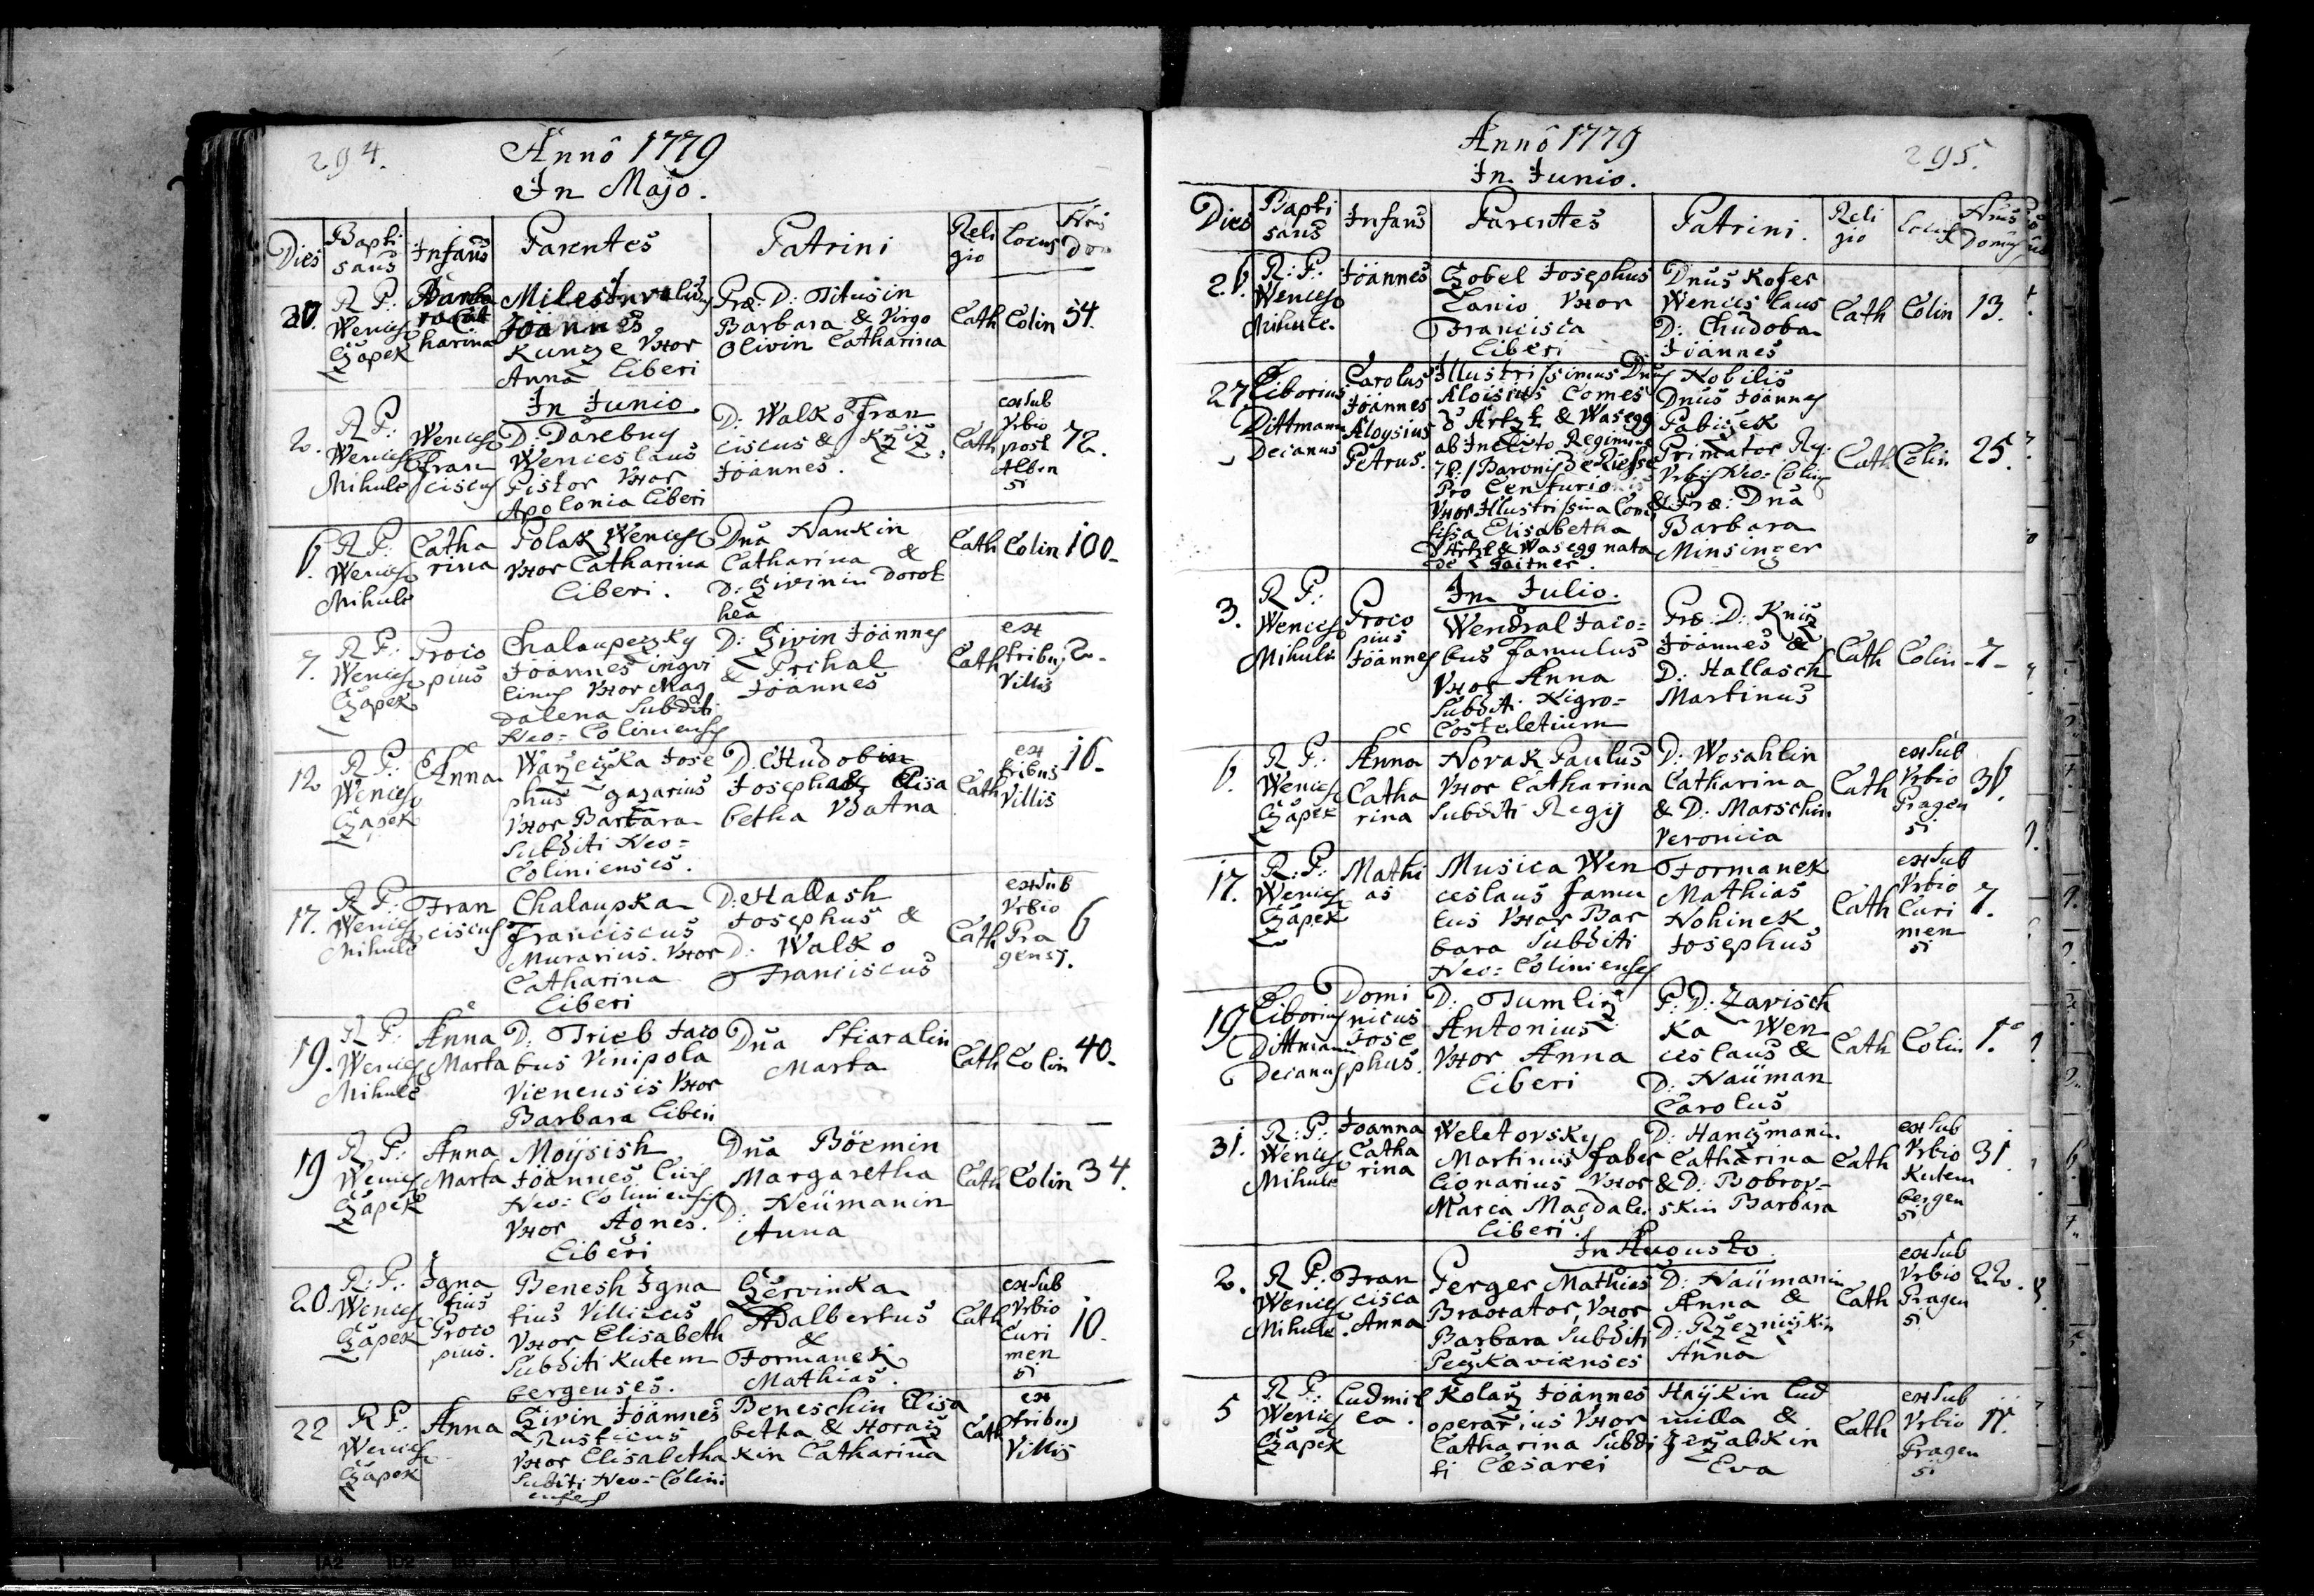 294.
Annô 1779
In Majo.
Dies Bapti sans Infans Parentes Patrini Reli gio Locus Nrus dom
R P: Wencesl Czapek
harina
Miles Invalidus
Joannes
Kunze Uxor
Anna Liberi
Præ: D: Titusin
Barbara & Virgo
Olivin Catharina
Cath Colin 54.
In Junio
2. R P:
Wencesl
Mihule
Wencesl
Fran
ciscus
D: Darebny
Wenceslaus
Pistor Uxor
Apolonia Liberi
D: Walko Fran
ciscus & Kziz
Joannes.
Cath
ex Sub
Vrbio
post
Alben
si
72.
6. R P:
Wencesl
Mihule
Catha
rina
Polak Wencesl
Uxor Catharina
Liberi.
Dña Hankin
Catharina &
D: Zivinin Dorot
hea
Cath Colin 100-
7. R P:
Wencesl
Czapek
Proco
pius
Chalaupezky
Joannes inqvi
linus Uxor Mag
dalena Subditi
Neo= Colinienses
D: Zivin Joannes
& Prihal
Joannes
Cath
ex
tribus
Villis
2-
12 R P:
Wencesl
Czapek
Anna
Warzeczka Jose
phus gazarius
Uxor Barbara
Subditi Neo=
Colinienses.
D: Chudobin
Josepha & Elisa
betha
Cath
ex
tribus
Villis
16-
17. R P:
Wencesl
Mihule
Fran
ciscus
Chalaupka
Franciscus
Murarius. Uxor
Catharina
Liberi
D: Hallash
Josephus &
D: Walko
Franciscus
Cath
ex Sub
Vrbio
Pra
gensi.
6
19. R P:
Wencesl
Mihule
Anna
Marta
D: Trieb Jaco
bus Vinipola
Vienensis Uxor
Barbara Liberi
Dña Skiaralin
Marta
Cath Colin 40-
19 R P:
Wencesl
Czapek
Anna
Marta
Moÿsish
Joannes Civis
Neo= Coliniensis
Uxor Agnes.
Liberi
Dña Böemin
Margaretha
D: Neümanin
Anna
Cath Colin 34.
20. R: P:
Wencesl
Czapek
Igna
tius
Proco
pius.
Benesh Igna
tius Villicus
Uxor Elisabeth
Subditi Kutem
bergenses.
Czervinka
Adalbertus
&
Formanek
Mathias.
Cath
ex Sub
Vrbio
Curi
men
si
10.
22 R P:
Wencesl
Czapek
Anna
Zivin Joannes
Rusticus
Uxor Elisabetha
Subditi Neo= Colini
enses
Beneschin Elisa
betha & Horaiz
kin Catharina
Cath
ex
tribus
Villis
Annô 1779
In Junio.
295.
Dies Bapti sans Infans Parentes Patrini. Reli gio Locus Nrus Domus
26. R: P:
Wencesl
Mihule.
Joannes
Czobel Josephus
Lanio Uxor
Francisca
Liberi
Dnus Kofer
Wenceslaus
D: Chudoba
Joannes
Cath Colin 13.
27 Liborius
Dittmann
Decanus
Carolus
Joannes
Aloysius
Petrus.
Illustrissimus Dnus
Aloisius Comes
d'Artzt & Wasegg
ab Inclito Regimine
Baronis de Riesse
Pro Centurio
Uxor Illustrissima Comi
tissa Elisabetha
d'Artzt & Wasegg nata
de Gaitner.
Nobilis
Dnus Joannes
Pabiczek
Primator Reg:
Vrbis Neo= Colin
& Præ: Dna
Barbara
Minsinger
Cath Colin 25.
In Julio.
3. R P:
Wencesl
Mihule
Proco
pius
Joannes
Wendral Jaco=
bus famulus
Uxor Anna
Subditi Nigro=
Costeletium
Præ: D: Kniz
Joannes &
D: Hallasch
Martinus
Cath Colin -7-
6. R P:
Wencesl
Czapek
Anna
Catha
rina
Novak Paulus
Uxor Catharina
Subditi Regij
D: Wosahlin
Catharina
& D: Marschin
Veronica
Cath
ex Sub
Vrbio
Pragen
si
36.
17. R: P:
Wencesl
Czapek
Mathi
as
Musica Wen
ceslaus famu
lus Uxor Bar
bara Subditi
Neo= Colinienses
Formanek
Mathias
Nohinek
Josephus
Cath
ex Sub
Vrbio
Curi
men
si
7.
19 Liborius
Dittmann
Decanus
Domi
nicus
Jose
phus.
D: Tumliz
Antonius
Uxor Anna
Liberi
P: D: Zavisch
ka Wen
ceslaus &
D: Naüman
Carolus
Cath Colin 1.
31. R: P:
Wencesl
Mihule
Joanna
Catha
rina
Weletovsky
Martinus faber
lignarius Uxor
Maria Magdale.
Liberi.
D: Hanzmanin
Catharina
& D: Bobrov=
skin Barbara
Cath
ex Sub
Vrbio
Kutem
bergen
si
31
In Augusto.
2. R P:
Wencesl
Mihule.
Fran
cisca
Anna
Perger Mathias
Braxator, Uxor
Barbara Subditi
Peczkavienses
D: Naümanin
Anna &
D: Rzezniczkin
Anna
Cath
ex Sub
Vrbio
Pragen
si
22.
5 R P:
Wencesl
Czapek
Ludmil
la.
Kolarz Joannes
operarius Uxor
Catharina Subdi
ti Cæsarei
Haÿkin Lud
milla &
Jerzabkin
Eva
Cath
ex Sub
Vrbio
Pragen
si
17.